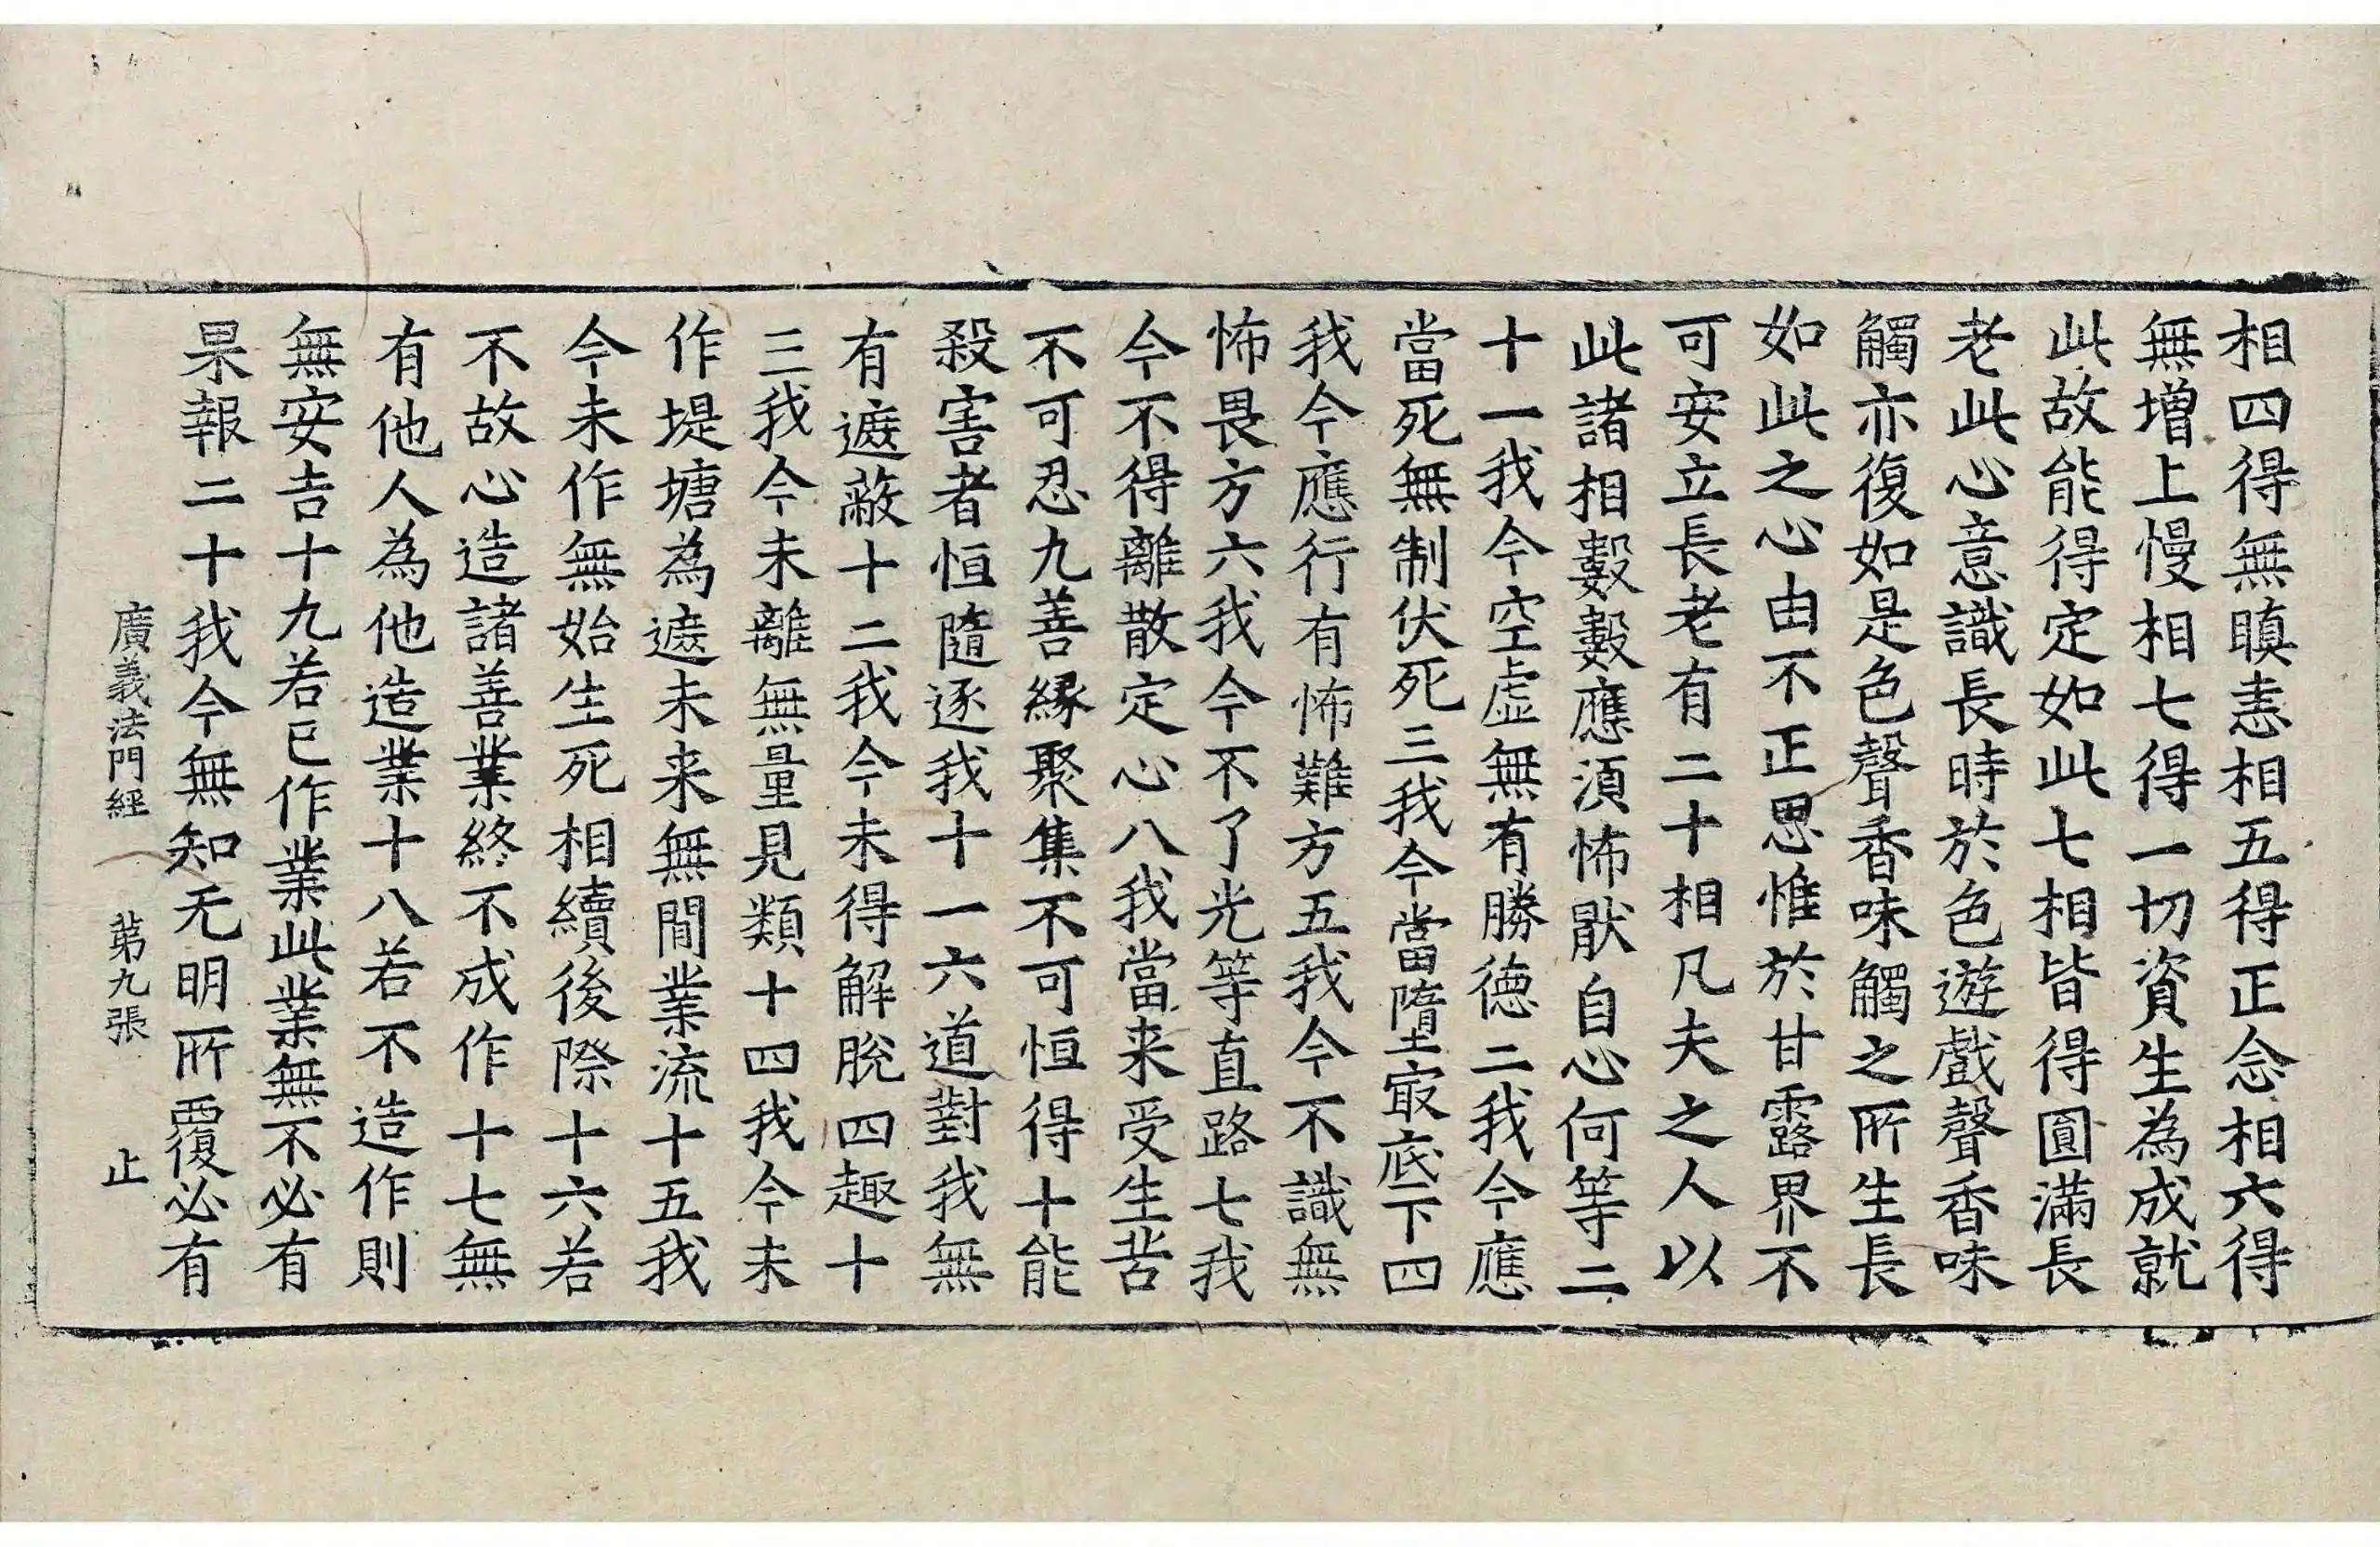 相四得無瞋恚相五得正念相六得
無增上慢相七得一切資生為成就
此故能得定如此七相皆得圓滿長
老此心意識長時於色遊戲聲香味
觸亦復如是色聲香味觸之所生長
如此之心由不正思惟於甘露界不
可安立長老有二十相凡夫之人以
此諸相數數應須怖猒自心何等二
十一我今空虛無有勝德二我今應
當死無制伏死三我今當墮㝡底下四
我今應行有怖難方五我今不識無
怖畏方六我今不了光等直路七我
今不得離散定心八我當来受生苦
不可忍九善縁聚集不可恒得十能
殺害者恒隨逐我十一六道對我無
有遮蔽十二我今未得解脫四趣十
三我今未離無量見類十四我今未
作堤塘為遮未来無間業流十五我
今未作無始生死相續後際十六若
不故心造諸善業終不成作十七無
有他人為他造業十八若不造作則
無安吉十九若已作業此業無不必有
果報二十我今無知无明所覆必有
廣義法門經　第九張　止